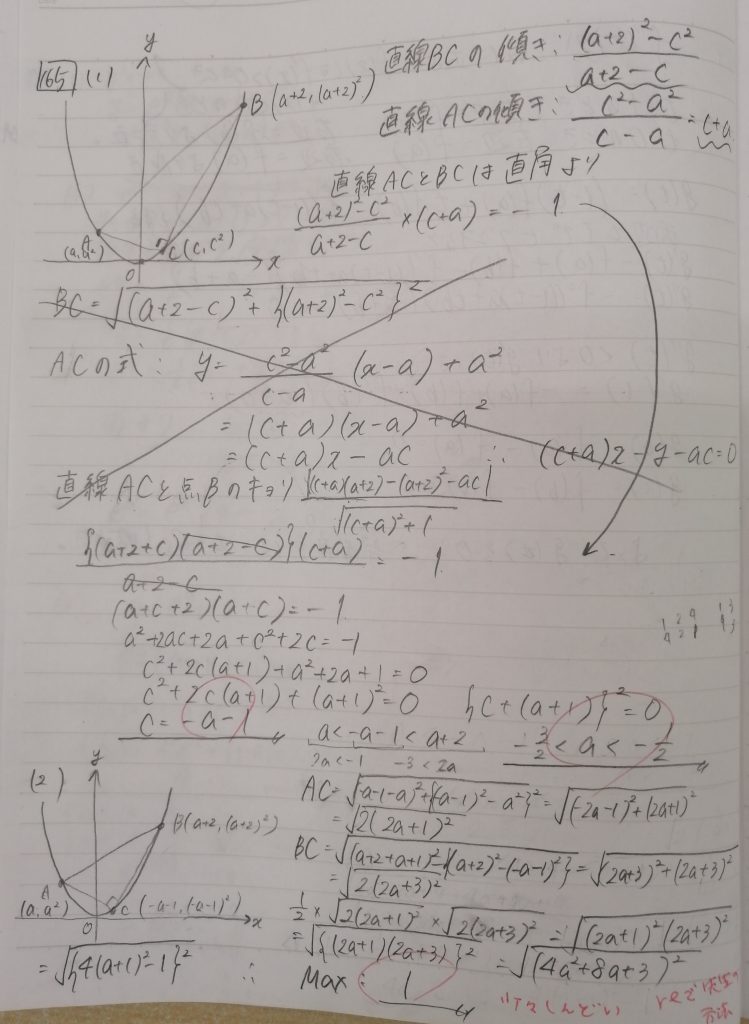 165 (1)
y
B(a+2, (a+2)²)
A
(a, a²)
C(c, c²)
O
x
直線BCの傾き: \frac{(a+2)²-c²}{a+2-c}
直線ACの傾き: \frac{c²-a²}{c-a} = c+a
直線ACとBCは直角より
\frac{(a+2)²-c²}{a+2-c} ×(c+a) = -1
BC = √{(a+2-c)² + {(a+2)²-c²}²}
ACの式: y = \frac{c²-a²}{c-a} (x-a) + a²
= (c+a)(x-a) + a²
= (c+a)x - ac ∴ (c+a)x - y - ac = 0
直線ACと点Bのキョリ \frac{|(c+a)(a+2)-(a+2)²-ac|}{√{(c+a)²+1}}
\frac{{(a+2+c)(a+2-c)}(c+a)}{a+2-c} = -1
(a+c+2)(a+c) = -1
a²+2ac+2a+c²+2c = -1
c²+2c(a+1)+a²+2a+1 = 0
c²+2c(a+1)+(a+1)² = 0 {c+(a+1)}² = 0
c = -a-1 a < -a-1 < a+2 -\frac{3}{2} < a < -\frac{1}{2}
2a < -1 -3 < 2a
1 2 4 1 3
4 2 1 1 3
(2)
y
B(a+2, (a+2)²)
A
(a, a²)
C(-a-1, (-a-1)²)
O
x
AC = √{(-a-1-a)²+{(-a-1)²-a²}²} = √{(-2a-1)²+(2a+1)²}
= √{2(2a+1)²}
BC = √{(a+2+a+1)²+{(a+2)²-(-a-1)²}} = √{(2a+3)²+(2a+3)²}
= √{2(2a+3)²}
\frac{1}{2} × √{2(2a+1)²} × √{2(2a+3)²} = √{(2a+1)²(2a+3)²}
= √{{(2a+1)(2a+3)}²} = √{(4a²+8a+3)²}
= √{{4(a+1)²-1}²} ∴ Max: 1
しんどい